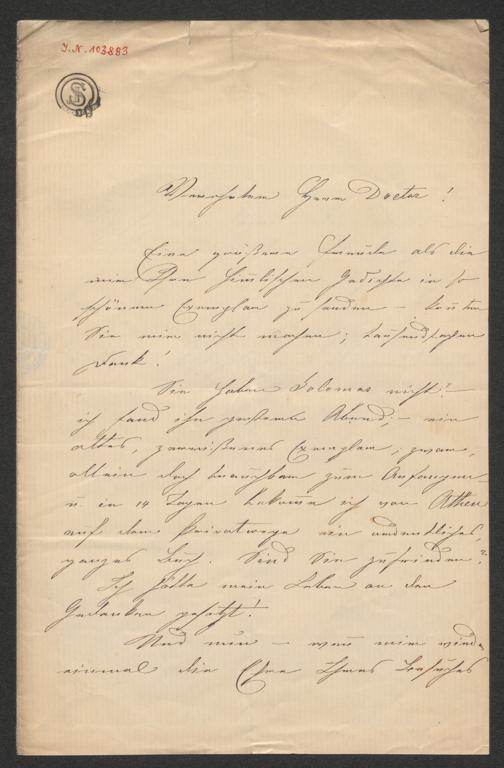 J.N. 103883
S
Verehrter Herr Doctor!
Eine größere Freude als die
mir Ihre himlischen Gedichte in so
schönem Exemplar zu senden – konnten
Sie mir nicht machen; tausendfachen
Dank!
Sie haben Solomos nicht? –
ich fand ihn gestern Abend, – ein
altes, zerrissenes Exemplar, zwar,
allein doch brauchbar zum Anfangen –
u. in 14 Tagen bekomme ich von Athen
auf dem Privatwege ein ordentliches,
ganzes Buch. Sind Sie zufrieden?
Ich hätte mein Leben an den
Gedanken gesetzt!
Und nun – wann mir wieder
einmal die Ehre Ihres Besuches